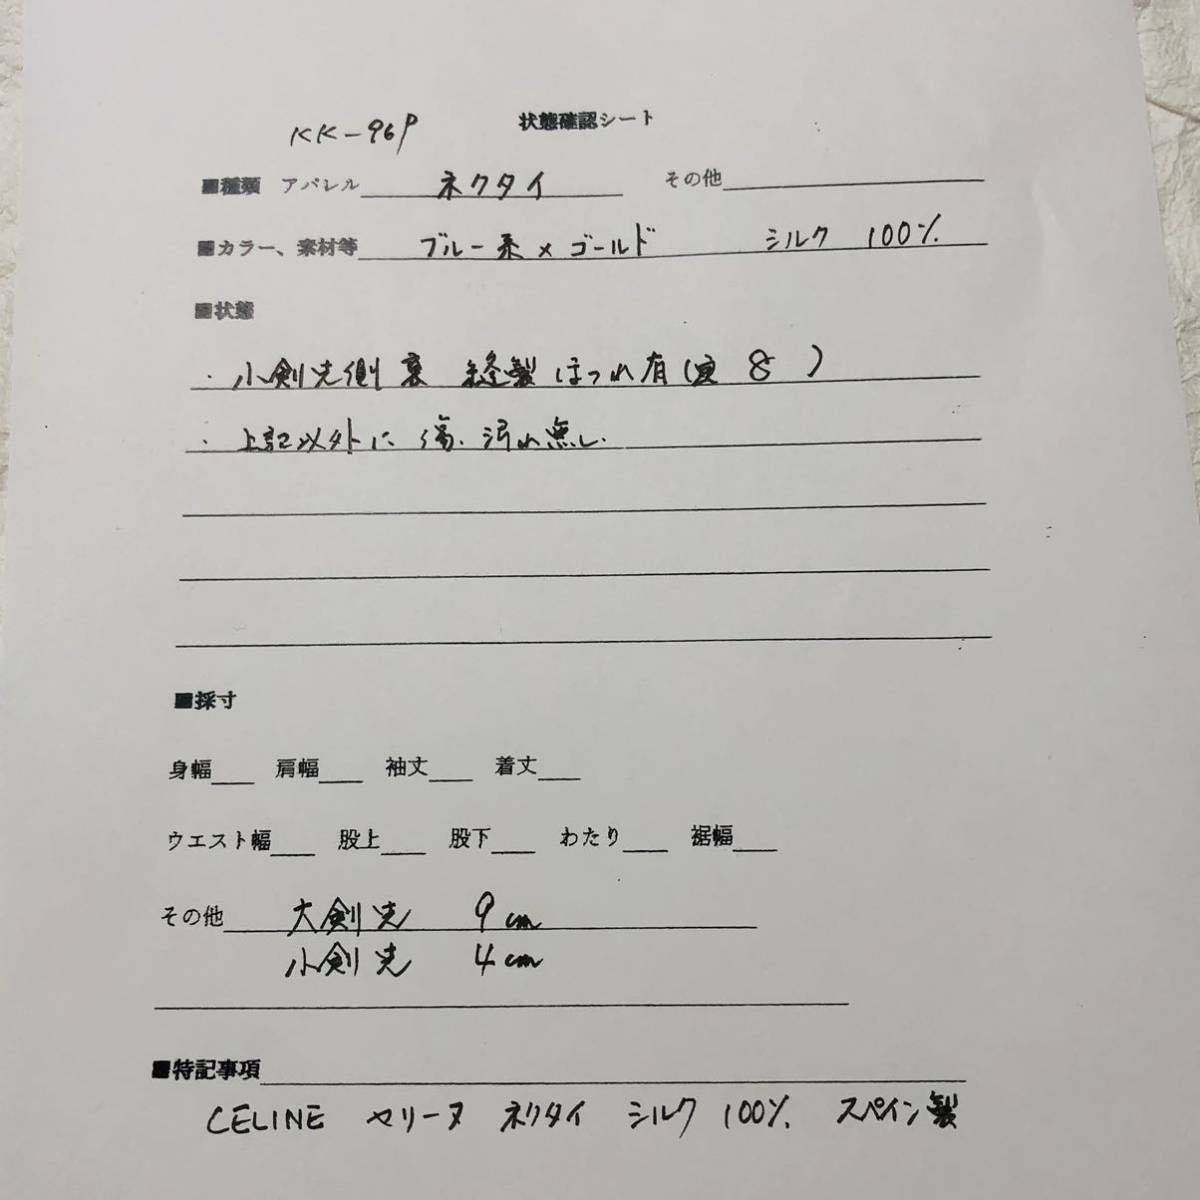 KK-96P 状態確認シート
■種類 アパレル ネクタイ その他
■カラー、素材等 ブルー系×ゴールド シルク 100%
■状態
・小剣先側裏 縫製ほつれ有( 8 )
・上記以外に傷、汚れ無し.
■採寸
身幅 肩幅 袖丈 着丈
ウエスト幅 股上 股下 わたり 裾幅
その他 大剣先 9cm
小剣先 4cm
■特記事項
CELINE セリーヌ ネクタイ シルク 100% スペイン製